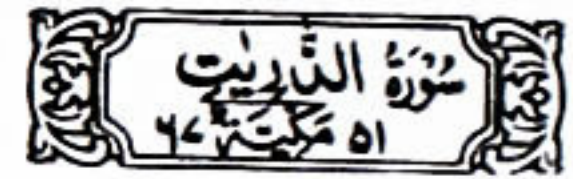 سُوْرَةُ الذّٰرِيٰتِ
٥١ مَكِّيَّةٌ ٦٧